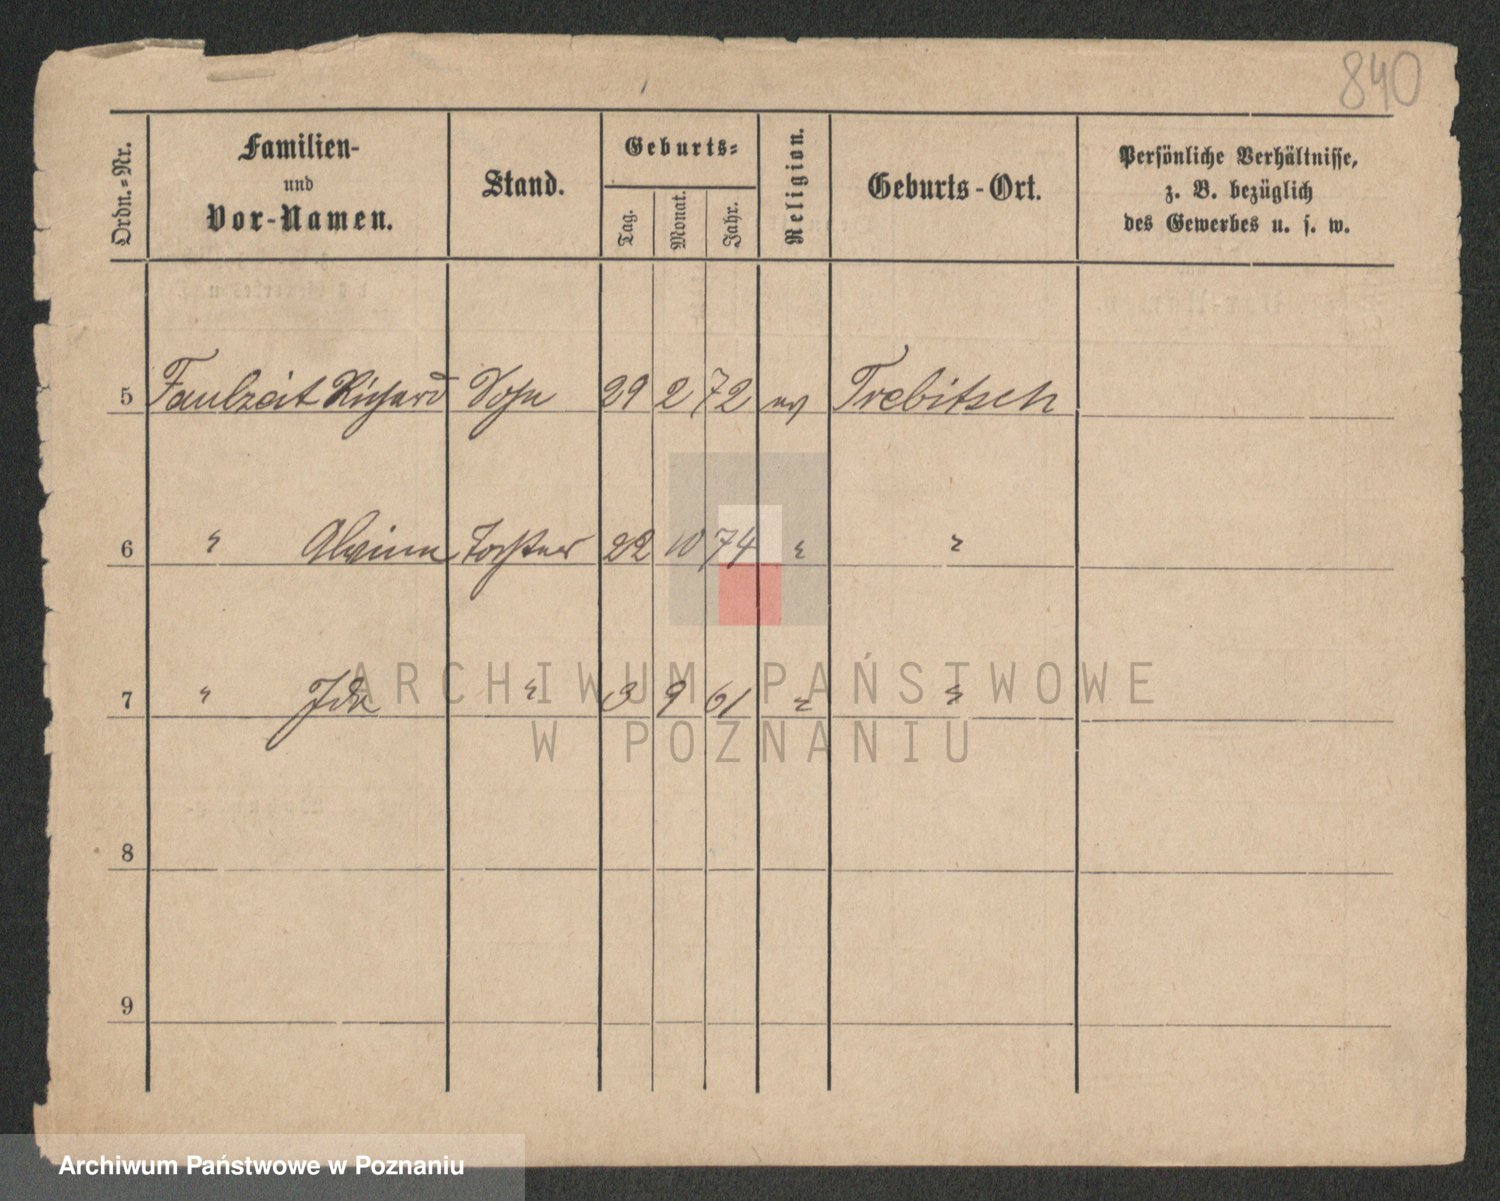 840
Ordn.-Nr.
Familien-
und
Vor-Namen.
Stand.
Geburts-
Tag.
Monat.
Jahr.
Religion.
Geburts-Ort.
Persönliche Verhältnisse,
z. B. bezüglich
des Gewerbes u. s. w.
5 Faulzeit Richard Sohn 29 2 72 ev Trebitsch
6 " Alwine Tochter 22 10 74 " "
7 " Ida " 3 9 61 " "
8
9
ARCHIWUM PAŃSTWOWE
W POZNANIU
Archiwum Państwowe w Poznaniu